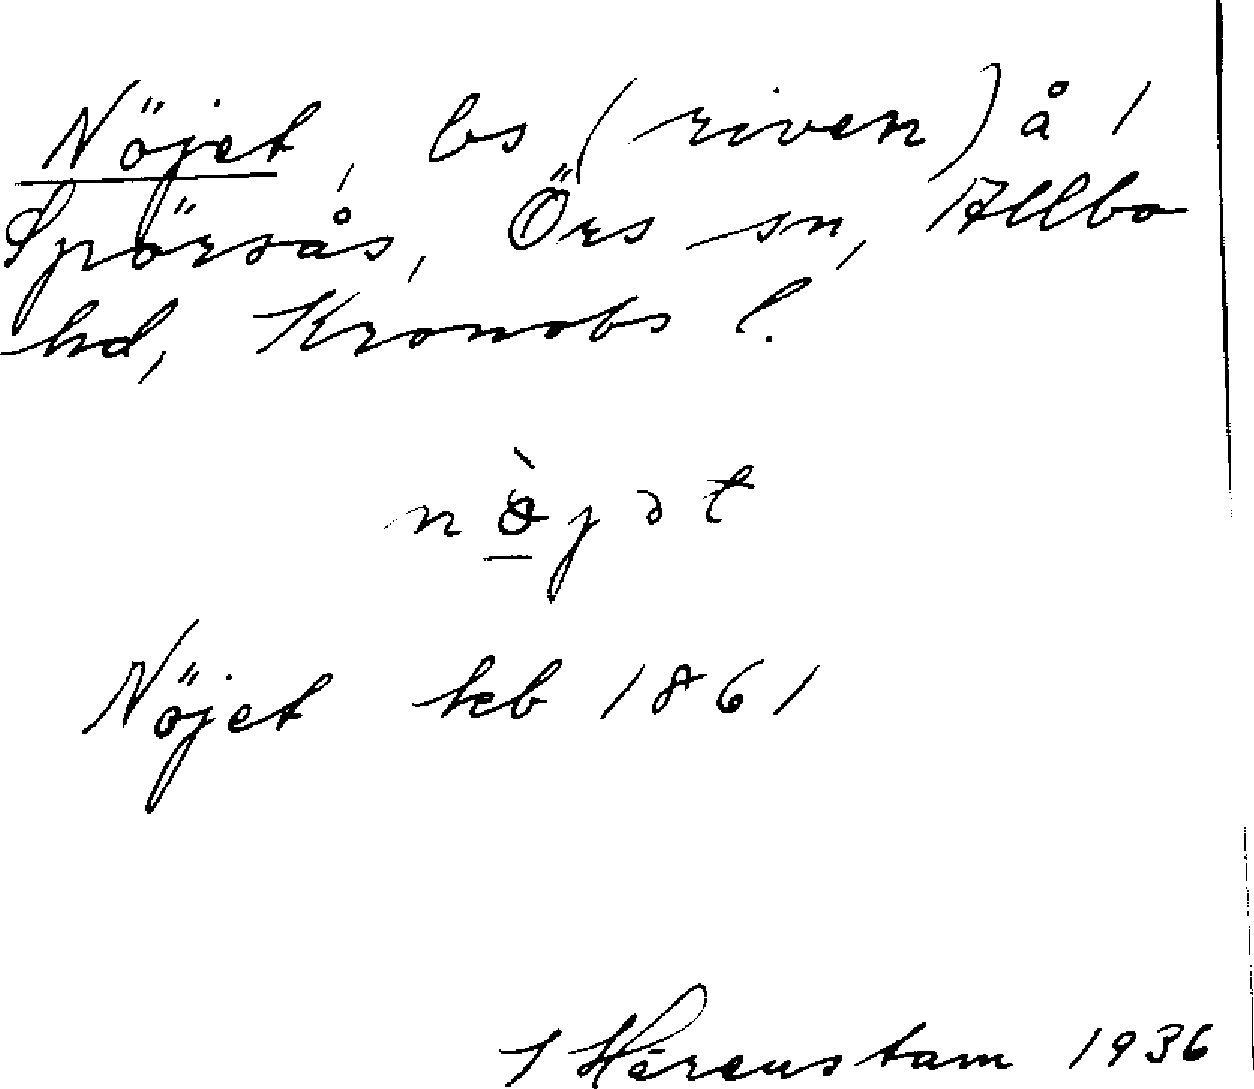 Nöjet, bs (riven) å 1
Spörsås, Örs sn, Allbo
hd, Kronobs l.
nø̀jət
Nöjet hfb 1861
1936